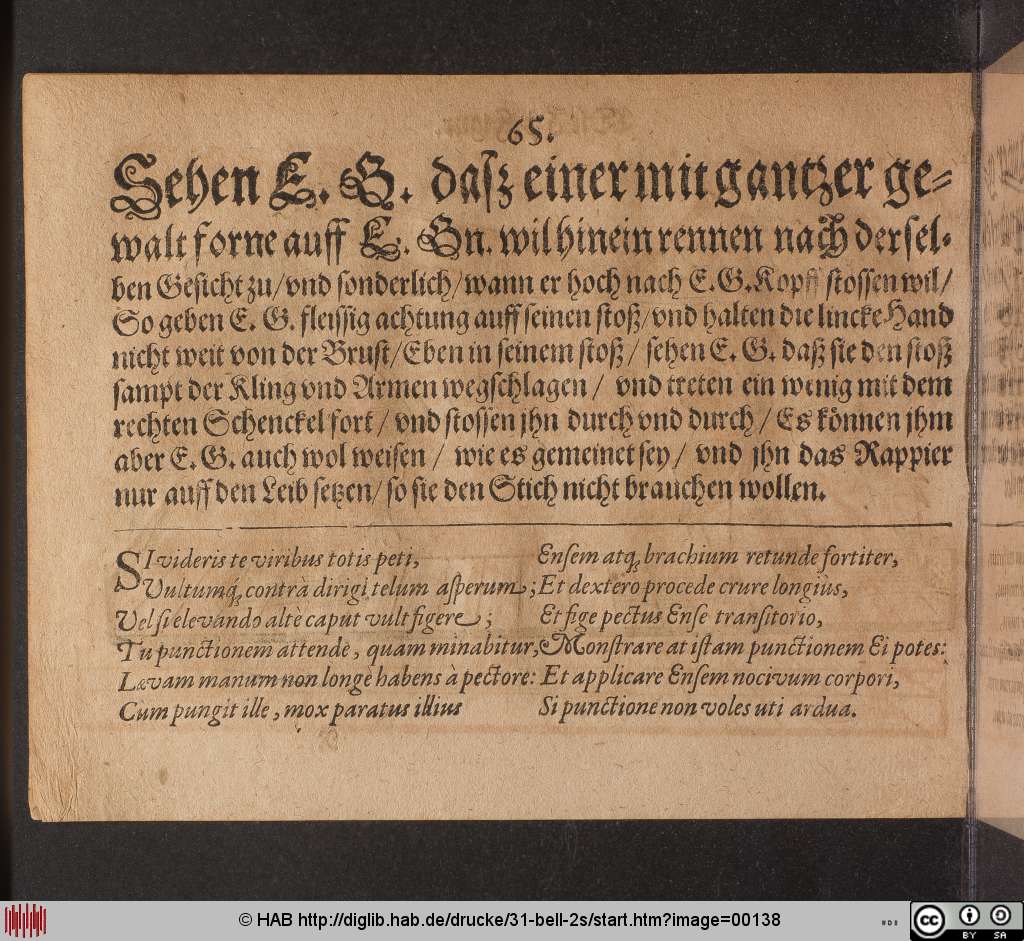 65.
Sehen E. G. daſz einer mit gantzer ge-
walt forne auff E. Gn. wil hinein rennen nach derſel-
ben Geſicht zu/vnd ſonderlich/wann er hoch nach E. G. Kopff ſtoſſen wil/
So geben E. G. fleiſſig achtung auff ſeinen ſtoß/vnd halten die lincke Hand
nicht weit von der Bruſt/Eben in ſeinem ſtoß/ ſehen E. G. daß ſie den ſtoß
ſampt der Kling vnd Armen wegſchlagen / vnd treten ein wenig mit dem
rechten Schenckel fort/ vnd ſtoſſen jhn durch vnd durch/ Es können jhm
aber E. G. auch wol weiſen / wie es gemeinet ſey/ vnd jhn das Rappier
nur auff den Leib ſetzen/ſo ſie den Stich nicht brauchen wollen.
SI videris te viribus totis peti,
Vultumq́; contrà dirigi telum aſperum;
Vel ſi elevando altè caput vult figere;
Tu punctionem attende, quam minabitur,
Lævam manum non longè habens à pectore:
Cum pungit ille, mox paratus illius
Enſem atq; brachium retunde fortiter,
Et dextero procede crure longiùs,
Et fige pectus Enſe tranſitorio,
Monſtrare at iſtam punctionem Ei potes:
Et applicare Enſem nocivum corpori,
Si punctione non voles uti ardua.
© HAB http://diglib.hab.de/drucke/31-bell-2s/start.htm?image=00138
cc BY SA